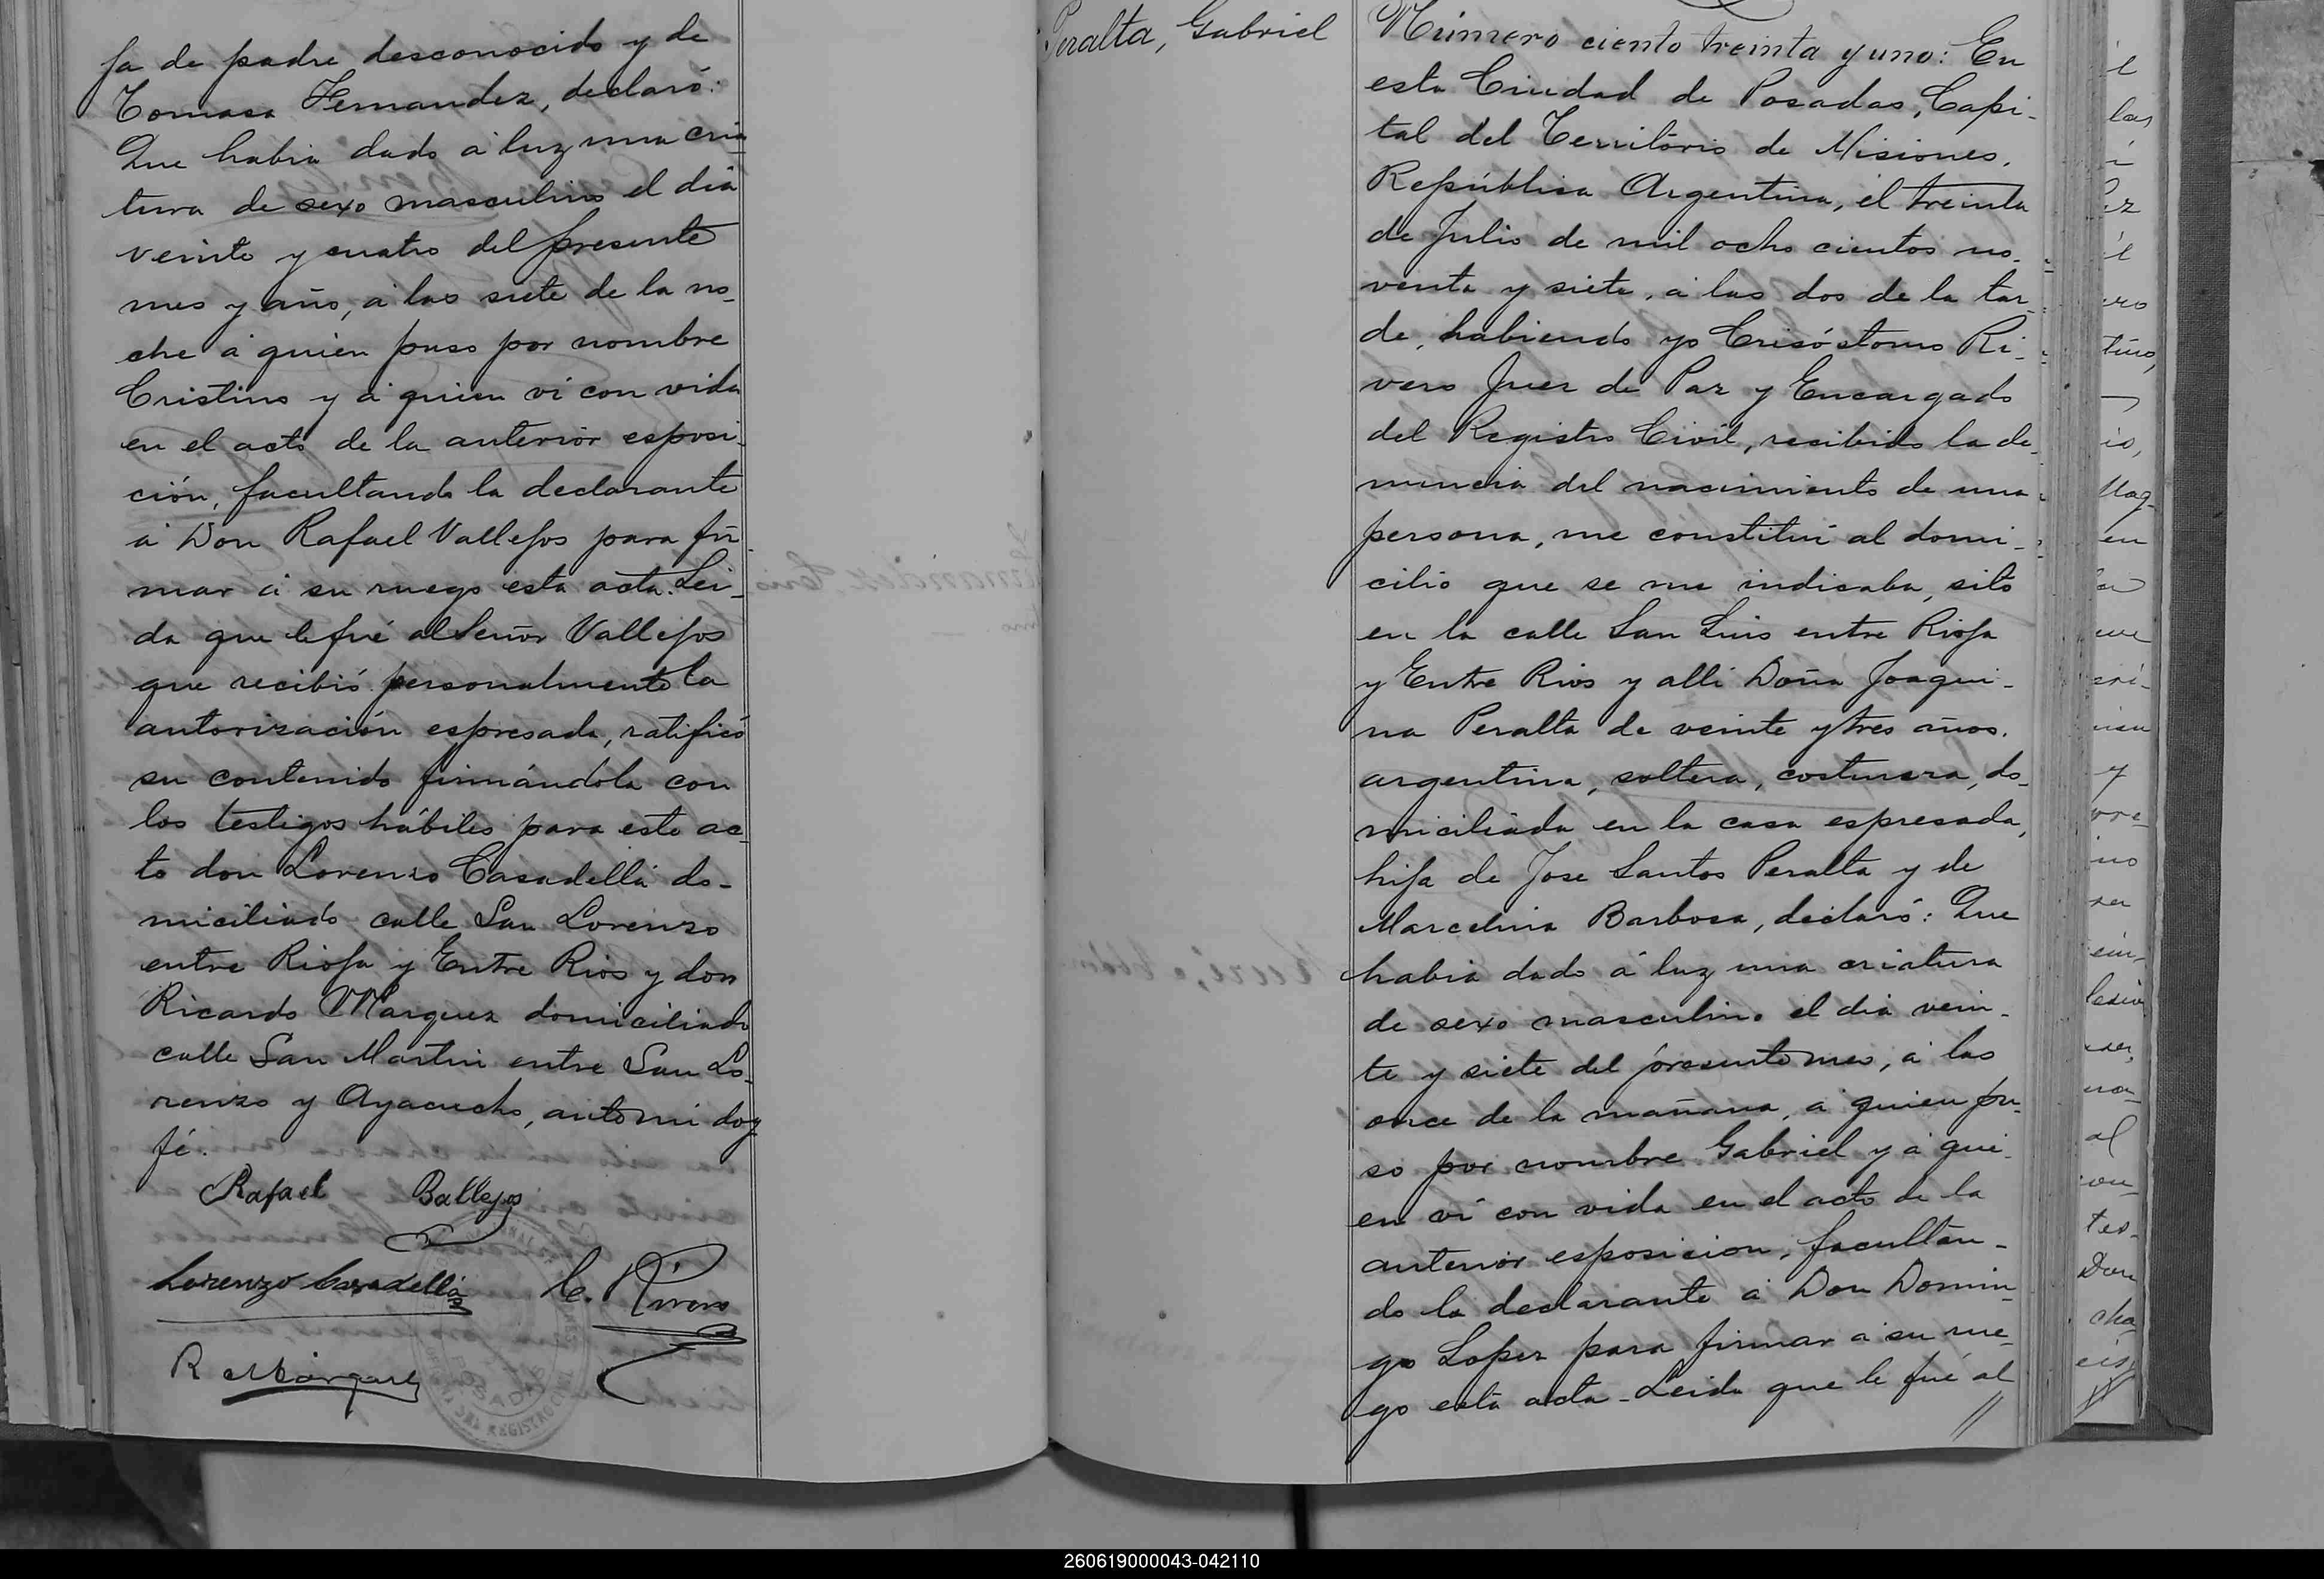 ja de padre desconocido y de
Tomasa Fernandez, declaró:
Que habia dado á luz una cria
tura de sexo masculino el dia
veinte y cuatro del presente
mes y año, á las siete de la no_
che á quien puso por nombre
Cristino y á quien vi con vida
en el acto de la anterior esposi_
ción, facultando la declarante
á Don Rafael Vallejos para fir
mar á su ruego esta acta. Lei_
da que le fué al Señor Vallejos
que recibió personalmente la
autorización espresada, ratificó
su contenido firmándola con
los testigos hábiles para este ac_
to don Lorenzo Casadellá do_
miciliado calle San Lorenzo
entre Rioja y Entre Rios y don
Ricardo Marquez domiciliado
calle San Martin entre San Lo_
renzo y Ayacucho, ante mi doy
fé.
Rafael Ballejos
Lorenzo Casadellá C. Rivero
R Márquez
POSADAS
REGISTRO CIVIL
Peralta, Gabriel
Número ciento treinta y uno: En
esta Ciudad de Posadas, Capi_
tal del Territorio de Misiones,
República Argentina, el treinta
de Julio de mil ocho cientos no_
venta y siete, á las dos de la tar_
de, habiendo yo Crisóstomo Ri_
vero Juez de Paz y Encargado
del Registro Civil, recibido la de_
nuncia del nacimiento de una
persona, me constituí al domi_
cilio que se me indicaba, sito
en la calle San Luis entre Rioja
y Entre Rios y alli Doña Joaqui_
na Peralta de veinte y tres años,
argentina, soltera, costurera, do_
miciliada en la casa espresada,
hija de Jose Santos Peralta y de
Marcelina Barbosa, declaró: Que
habia dado á luz una criatura
de sexo masculino el dia vein_
te y siete del presente mes, á las
once de la mañana, á quien pu_
so por nombre Gabriel y á qui_
en vi con vida en el acto de la
anterior esposicion, facultan_
do la declarante á Don Domin_
go Lopez para firmar á su rue_
go esta acta _ Leida que le fué al
//
260619000043-042110